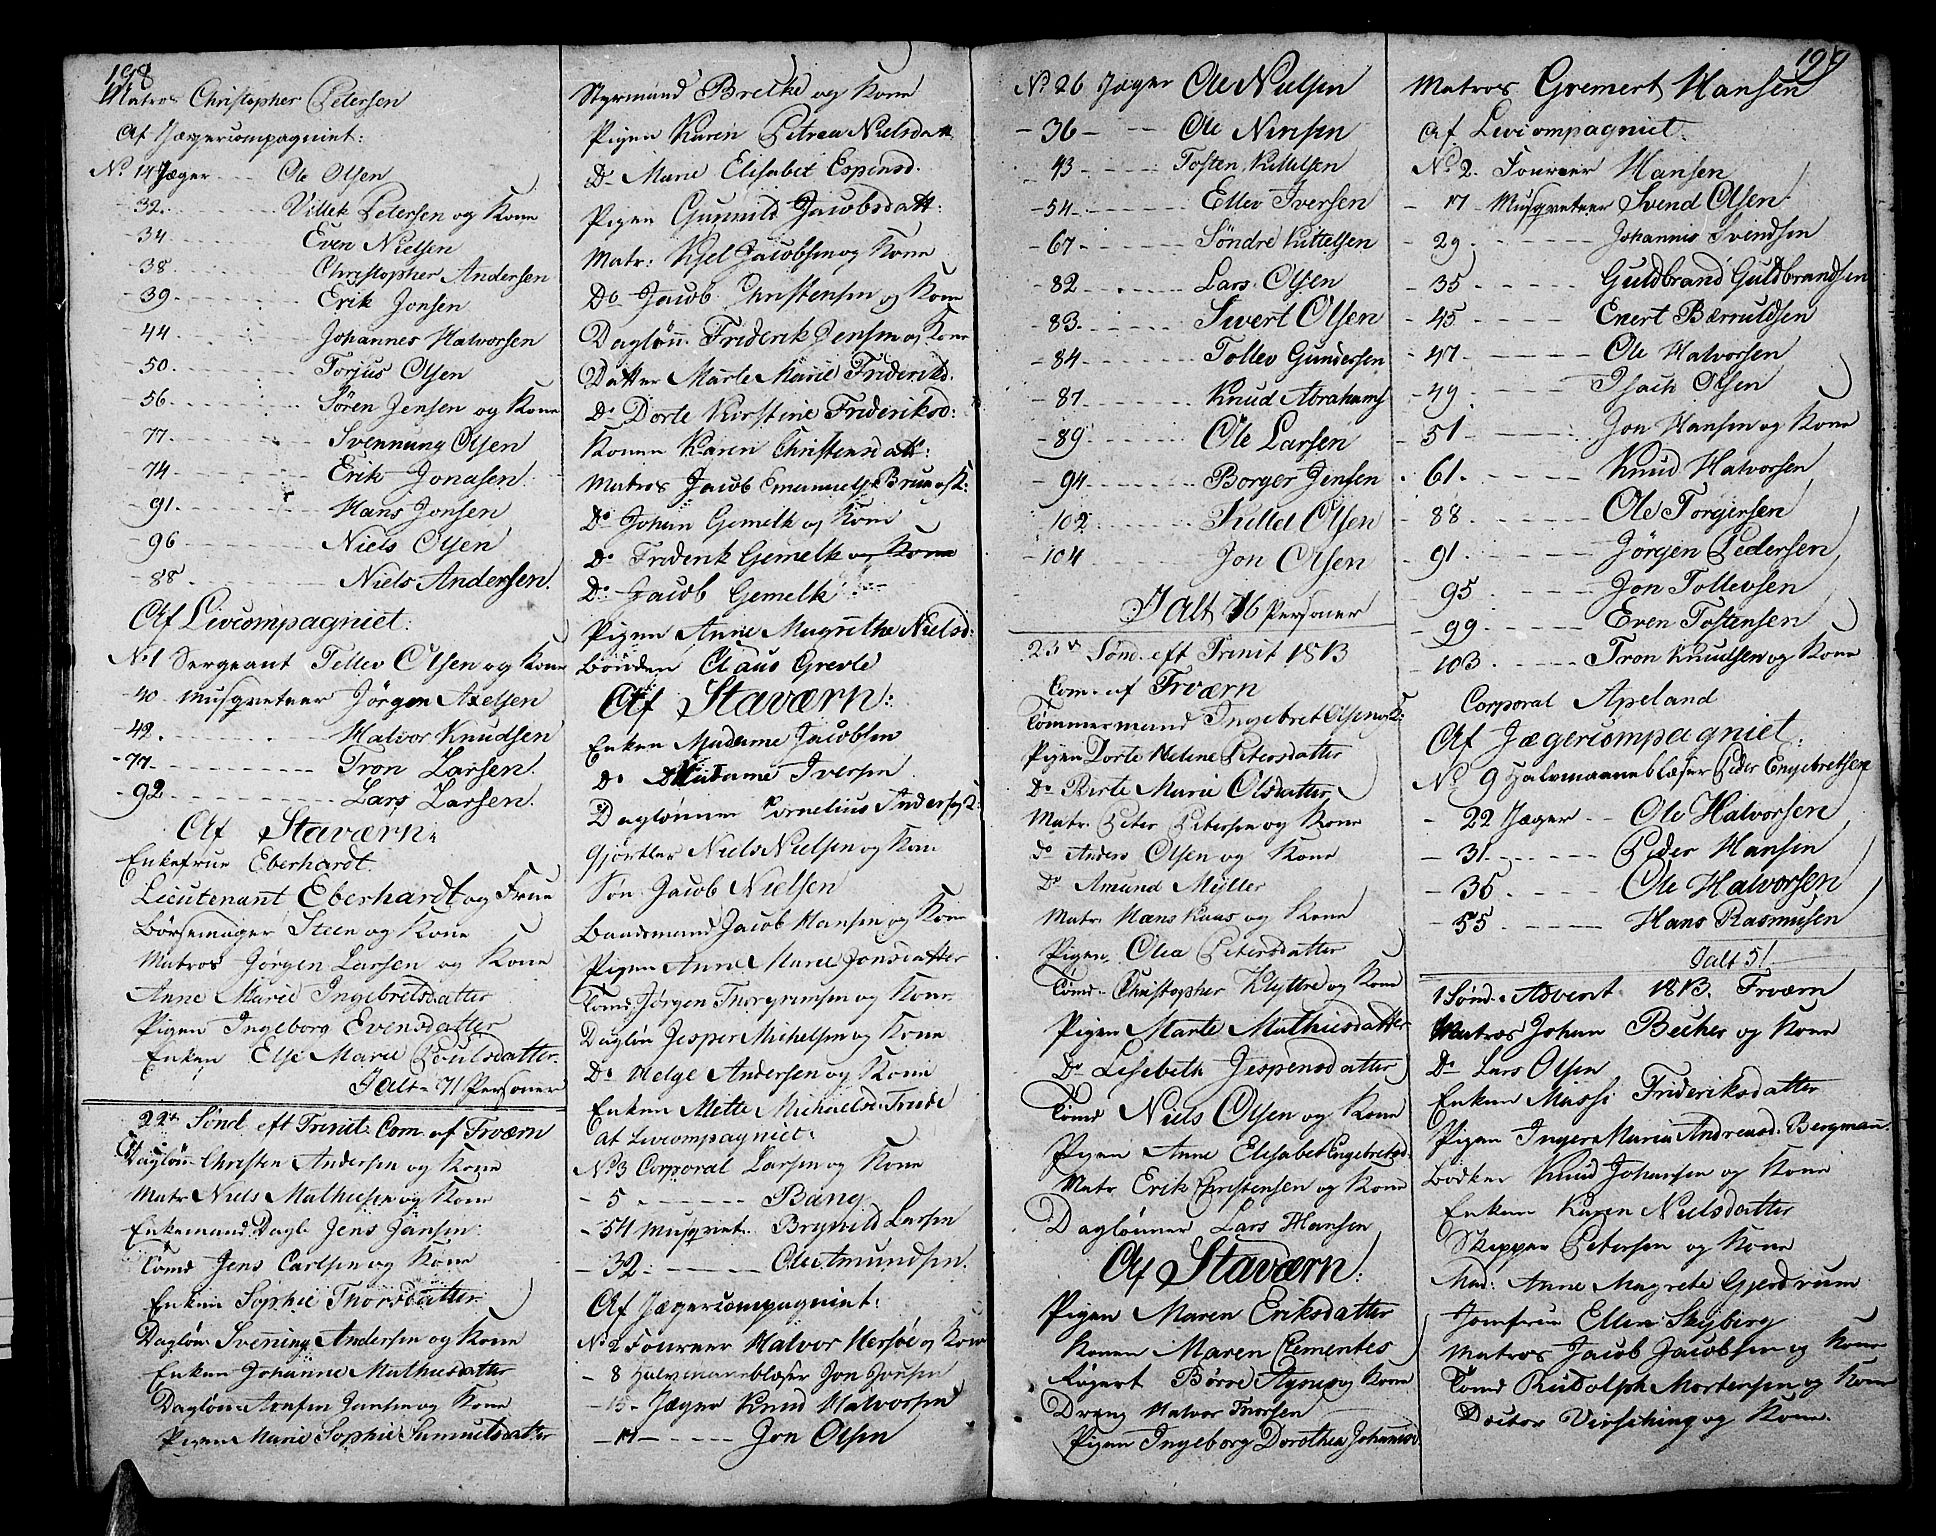 198
Matros Christopher Petersen
Af Jægercompagniet:
No. 14 Jæger Ole Olsen
32. Villek Petersen og Kone
34 Even Nielsen
38 Christopher Andersen
39 Erik Jonsen
44 Johannes Halvorsen
50 Torjus Olsen
56 Sören Jensen og Kone
77 Svennung Olsen
74 Erik Jonasen
91 Hans Jonsen
96 Niels Olsen
88 Niels Andersen.
Af Livcompagniet:
No 1 Sergeant Tellev Olsen og Kone
40 Musqveteer Jörgen Axelsen
42 Halvor Knudsen
77 Tron Larsen.
92 Lars Larsen.
Af Staværn:
Enkefrue Eberhardt.
Lieutenant Eberhardt og Frue
Börsemager Steen og Kone
Matros Jörgen Larsen og Kone
Anne Marie Ingebretsdatter
Pigen Ingeborg Evensdatter
Enken Else Marie Poulsdatter
Jalt 71 Personer
22de Sönd. eft Trinit. Com. af Fværn
Daglönn Christen Andersen og Kone
Matr Niels Mathiesen og Kone
Enkemand Dagl. Jens Jansen
Tömd Jens Carlsen og Kone
Enken Sophie Thorsdatter
Daglön Svening Andersen og Kone
Enken Johanne Mathiesdatter
Daglön Jensen og Kone
Pigen Marie Sophie Samuelsdatter
Styrmand Brekke og Kone
Pigen Karen Petrea Nielsdatt
Do Marie Elisabet Espensd.
Pigen Gunnild Jacobsdatt:
Matr: Kjel Jacobsen og Kone
Do Jacob Christensen og Kone
Daglönn. Friderik Jensen og Kone
Datter Marte Marie Frideriksd.
Do Dorte Kirstine Frideriksd:
Konen Karen Christensdatt:
Matros Jacob Emanuels Bruun og K:
Do Johan Gemelk og Kone
Do Friderik Gemelk og Kone
Do Jacob Gemelk
Pigen Anne Magrethe Nielsd:
Bonden Claus Grevle
Af Staværn:
Enken Madame Jacobsen
Do Madame Iversen
Daglönner Cornelius Anders og K:
Gjörtler Niels Nielsen og Kone
Sön Jacob Nielsen
Baadsmand Jacob Hansen og Kone
Pigen Anne Marie Jonsdatter
Tömd. Jörgen Thorgrimsen og Kone
Daglön Jesper Michelsen og Kone
Do Helge Andersen og Kone
Enken Mette Michaelsd. Trude
af Livcompagniet:
No 3 Corporal Larsen og Kone
5 Bang
54 Musqvet. Brynild Larsen
32 Ole Amundsen.
Af Jægercompagniet:
No 2 Foureer Halvor Hersöe og Kone
8 Halvmaaneblæser Jon Jonsen
15 Jæger Knud Halvorsen
17 Jon Olsen
199
No. 26 Jæger Ole Nielsen
36 Ole Nirisen
43 Tosten Kittelsen
54 Ellev Iversen
67 Söndre Kittelsen
82 Lars Olsen
83 Siwert Olsen
84 Tollev Gundersen
87 Knud Abrahams
89 Ole Larsen
94 Borger Jensen
102 Kittel Olsen
104 Jon Olsen
Jalt 76 Personer
23de Sönd. eft Trinit 1813
Com. af Fværn
Tömmermand Ingebret Olsen og K:
Pigen Dorte Helene Petersdatter
Do Birte Marie Olsdatter
Matr. Peter Petersen og Kone
Do Anders Olsen og Kone
Do Amund Myller
Matr. Hans Kaas og Kone
Pigen Olea Petersdatter
Tömd. Christopher Klyttre og Kone
Pigen Marte Mathiesdatter
Do Lisebeth Jespensdatter
Tömd Niels Olsen og Kone
Pigen Anne Elisabet Engebretsd.
Matr Erik Christensen og Kone
Daglönner Lars Hansen
Af Staværn:
Pigen Maren Eriksdatter
Konen Maren Clementes
Börre og Kone
Dreng Halvor Thorsen
Pigen Ingeborg Dorothea Johannesd
Matros Gremert Hansen
Af Livcompagniet:
No. 2. Foureer Hansen
17 Musqveteer Svend Olsen
29 Johannis Svendsen
35 Guldbrand Guldbrandsen
45 Enert Bærnuldsen
47 Ole Halvorsen
49 Isach Olsen
51 Jon Hansen og Kone
61. Knud Halvorsen
88 Ole Torgersen
91. Jörgen Pedersen
95 Jon Tollevsen
99 Even Tostensen
103 Tron Knudsen og Kone
Corporal Apeland
Af Jægercompagniet:
No. 9 Halvmaaneblæser Peder Engebretsen
22 Jæger Ole Halvorsen
31. Peder Hansen
35 Ole Halvorsen
55 Hans Rasmusen
Jalt 51
1 Sönd. Advent 1813. Fværn
Matros Johan Becher og Kone
Do Lars Olsen
Enken Massi Frideriksdatter
Pigen Inger Maria Andreasd. Bergman
Bödker Knud Johansen og Kone
Enken Karen Nielsdatter
Skipper Petersen og Kone
Mad: Anne Magrete Gjerdrum
Jomfrue Ellen Skyberg
Matros Jacob Jacobsen og Kone
Tömd Rudolph Mortensen og Kone
Doctor Virsching og Kone.